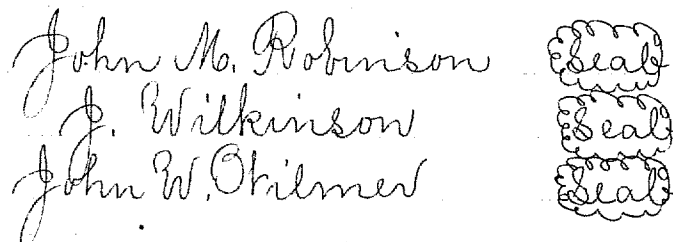 John M. Robinson Seal
J. Wilkinson Seal
John W. Wilmer Seal